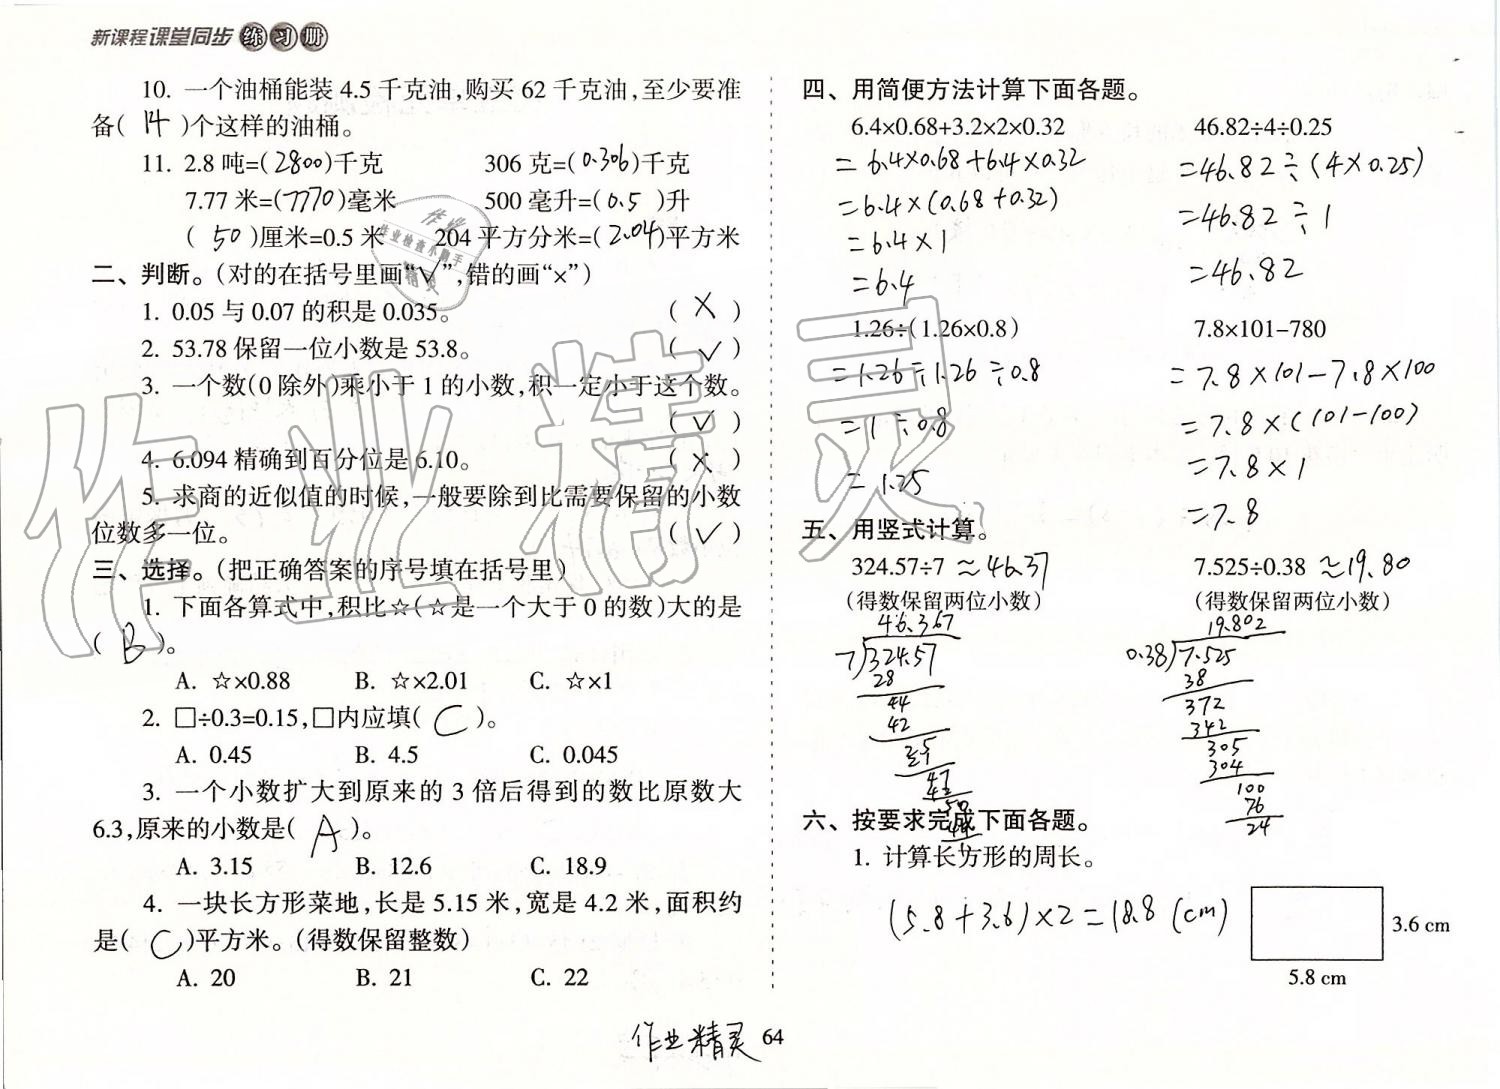 新课程课堂同步练习册
10. 一个油桶能装 4.5 千克油,购买 62 千克油,至少要准
备( 14 )个这样的油桶。
11. 2.8 吨=(2800)千克 306 克=(0.306)千克
7.77 米=(7770)毫米 500 毫升=(0.5)升
(50)厘米=0.5 米 204 平方分米=(2.04)平方米
二、判断。(对的在括号里画“√”,错的画“×”)
1. 0.05 与 0.07 的积是 0.035。 ( × )
2. 53.78 保留一位小数是 53.8。 ( √ )
3. 一个数(0 除外)乘小于 1 的小数,积一定小于这个数。
( √ )
4. 6.094 精确到百分位是 6.10。 ( × )
5. 求商的近似值的时候,一般要除到比需要保留的小数
位数多一位。 ( √ )
三、选择。(把正确答案的序号填在括号里)
1. 下面各算式中,积比☆(☆是一个大于 0 的数)大的是
( B )。
A. ☆×0.88 B. ☆×2.01 C. ☆×1
2. □÷0.3=0.15,□内应填( C )。
A. 0.45 B. 4.5 C. 0.045
3. 一个小数扩大到原来的 3 倍后得到的数比原数大
6.3,原来的小数是( A )。
A. 3.15 B. 12.6 C. 18.9
4. 一块长方形菜地,长是 5.15 米,宽是 4.2 米,面积约
是( C )平方米。(得数保留整数)
A. 20 B. 21 C. 22
四、用简便方法计算下面各题。
6.4×0.68+3.2×2×0.32 46.82÷4÷0.25
=6.4×0.68+6.4×0.32 =46.82÷(4×0.25)
=6.4×(0.68+0.32) =46.82÷1
=6.4×1 =46.82
=6.4
1.26÷(1.26×0.8) 7.8×101-780
=1.26÷1.26÷0.8 =7.8×101-7.8×100
=1÷0.8 =7.8×(101-100)
=1.25 =7.8×1
=7.8
五、用竖式计算。
324.57÷7≈46.37 7.525÷0.38≈19.80
(得数保留两位小数) (得数保留两位小数)
46.367 19.802
7)324.57 0.38)7.525
28 38
44 372
42 342
25 305
304
47 100
42 76
50 24
49
1
六、按要求完成下面各题。
1. 计算长方形的周长。
(5.8+3.6)×2=18.8(cm)
3.6 cm
5.8 cm
作业精灵
64
作业精灵
作业
作业检查小帮手
精灵